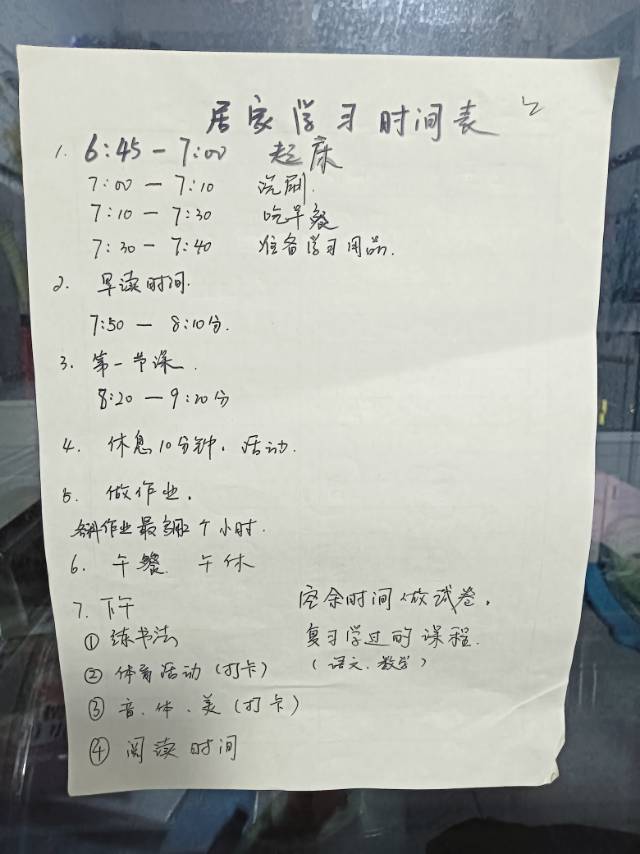 居家学习时间表
1. 6:45－7:00 起床
7:00－7:10 洗刷.
7:10－7:30 吃早餐
7:30－7:40 准备学习用品.
2. 早读时间.
7:50－8:10分.
3. 第一节课.
8:20－9:20分
4. 休息10分钟，活动.
5. 做作业.
各科作业最多2个小时.
6. 午餐 午休
7. 下午
① 练书法
② 体育活动(打卡)
③ 音、体、美(打卡)
④ 阅读时间
空余时间做试卷.
复习学过的课程.
(语文.数学)